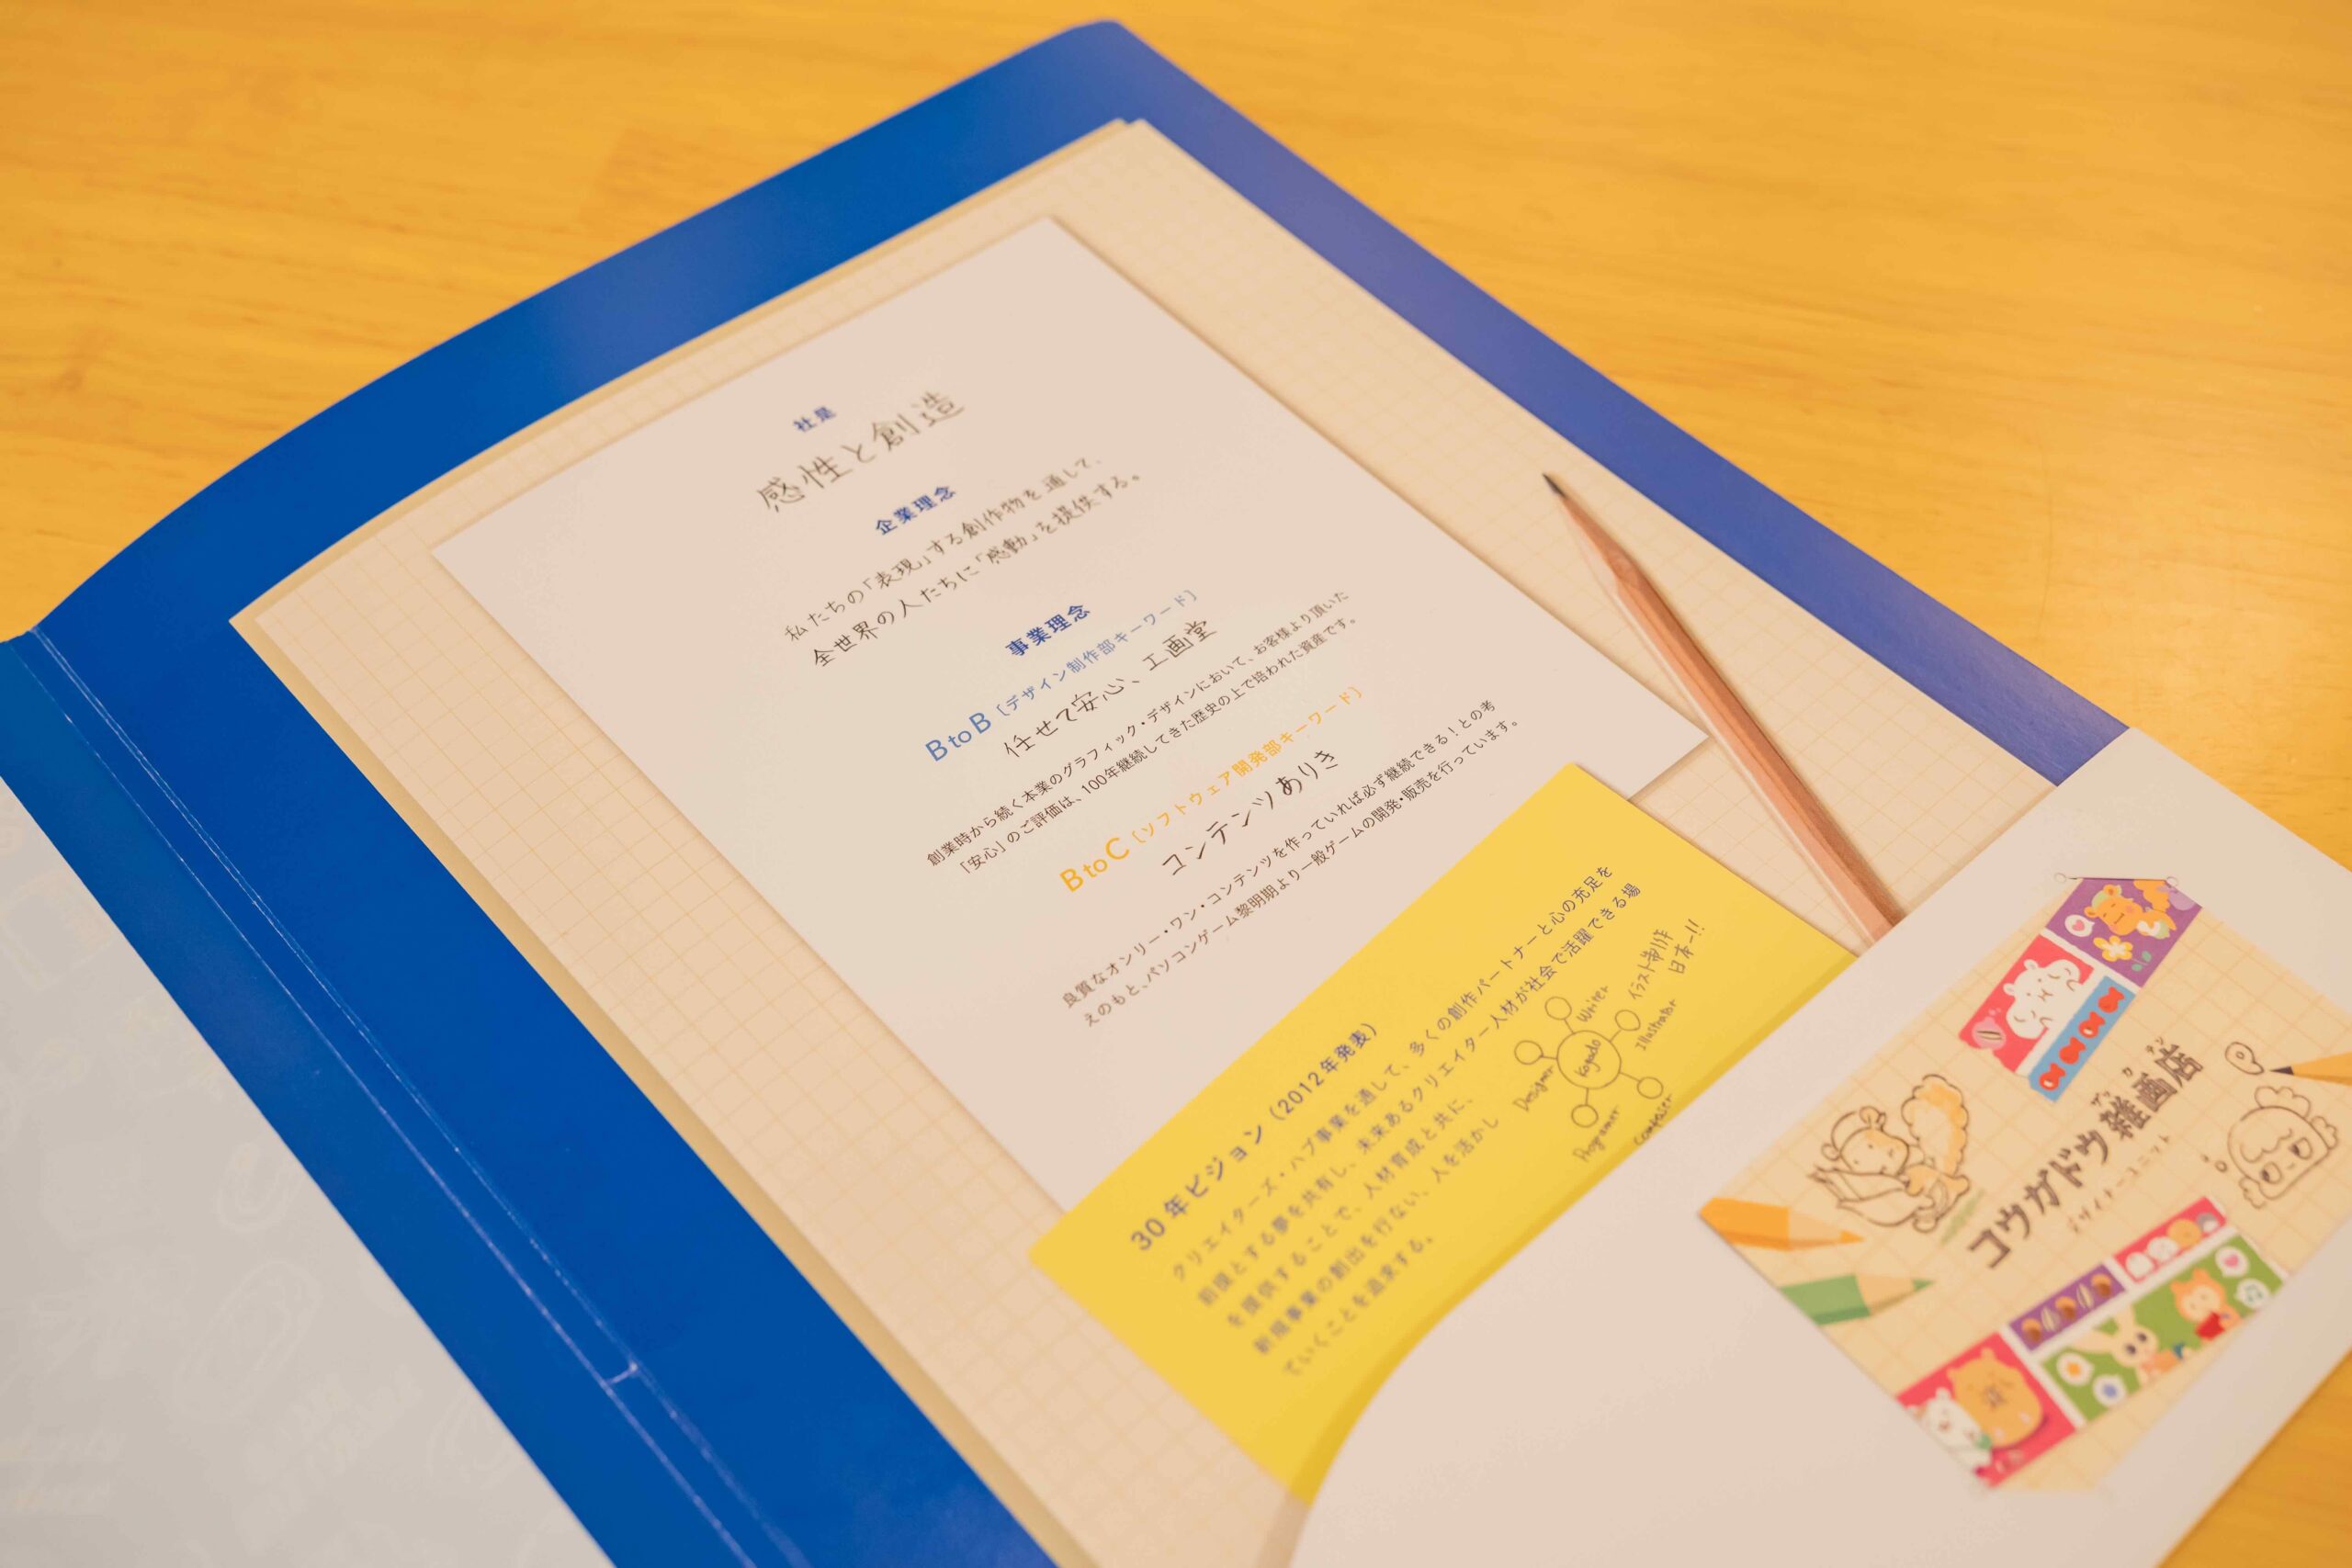 社是
感性と創造
企業理念
私たちの「表現」する創作物を通して、
全世界の人たちに「感動」を提供する。
事業理念
BtoB［デザイン制作部キーワード］
任せて安心、工画堂
創業時から続く本業のグラフィック・デザインにおいて、お客様より頂いた
「安心」のご評価は、100年継続してきた歴史の上で培われた資産です。
BtoC［ソフトウェア開発部キーワード］
コンテンツありき
良質なオンリー・ワン・コンテンツを作っていれば必ず継続できる！との考
えのもと、パソコンゲーム黎明期より一般ゲームの開発・販売を行っています。
30年ビジョン（2012年発表）
クリエイターズ・ハブ事業を通して、多くの創作パートナーと心の充足を
前提とする夢を共有し、未来あるクリエイター人材が社会で活躍できる場
を提供することで、人材育成と共に、
新規事業の創出を行ない、人を活かし
ていくことを追求する。
イラスト制作
日本一!!
Writer
Illustrator
Kogado
Designer
Programer
Composer
コウガドウ雑画店
ザッ ガ テン
デザイナーユニット